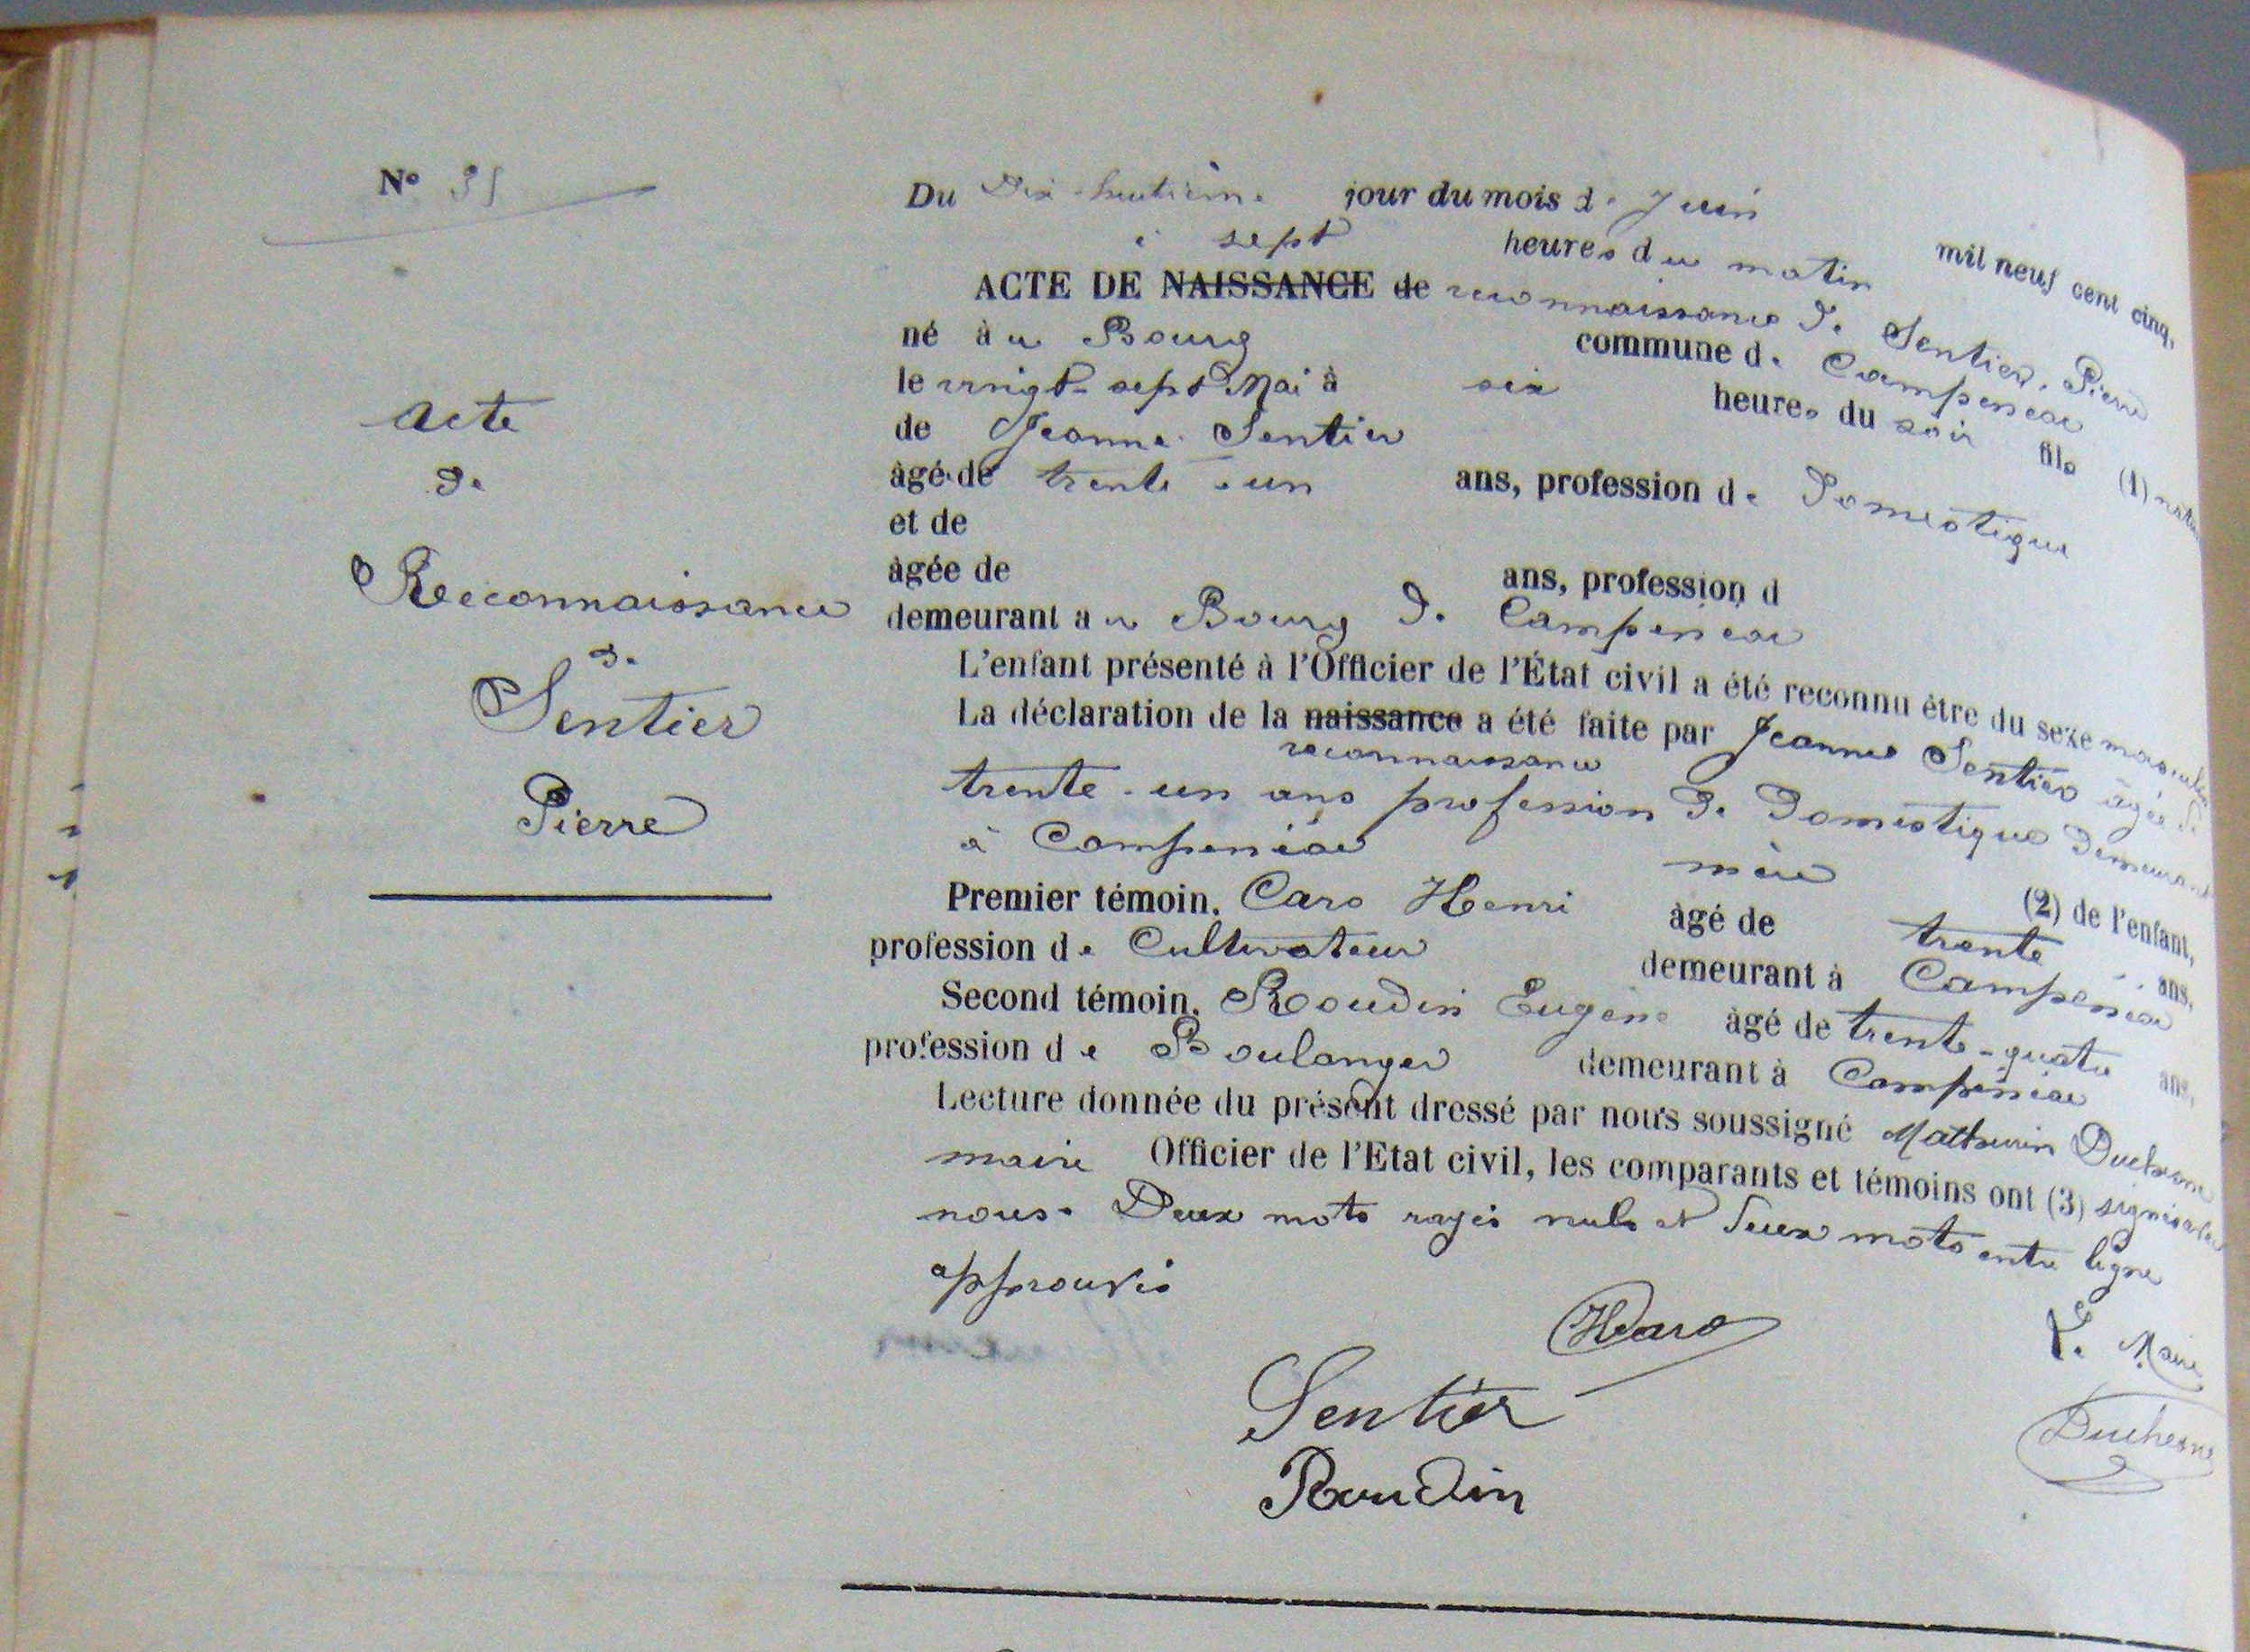 N° 35
Acte
de
Reconnaissance
de
Sentier
Pierre
Du Dix-huitième jour du mois de Juin mil neuf cent cinq,
à sept heures du matin
ACTE DE NAISSANCE de reconnaissance de Sentier, Pierre
né à u Bourg commune de Campénéac
le vingt-sept Mai à six heures du soir fils (1) natu
de Jeanne Sentier
âgé de trente-un ans, profession de Domestique
et de
âgée de ans, profession d
demeurant au Bourg de Campénéac
L'enfant présenté à l'Officier de l'État civil a été reconnu être du sexe masculin
La déclaration de la naissance a été faite par Jeanne Sentier âgée de
reconnaissance
trente-un ans profession de Domestique demeurant
à Campénéac mère (2) de l'enfant,
Premier témoin, Caro Henri âgé de trente ans,
profession de Cultivateur demeurant à Campénéac
Second témoin, Roudin Eugène âgé de trente-quatre ans,
profession de Boulanger demeurant à Campénéac
Lecture donnée du présent dressé par nous soussigné Mathurin Duchesne
maire Officier de l'Etat civil, les comparants et témoins ont (3) signé avec
nous. Deux mots rayés nuls et deux mots entre ligne
approuvés
HCaro
Le Maire
Sentier
Duchesne
Roudin